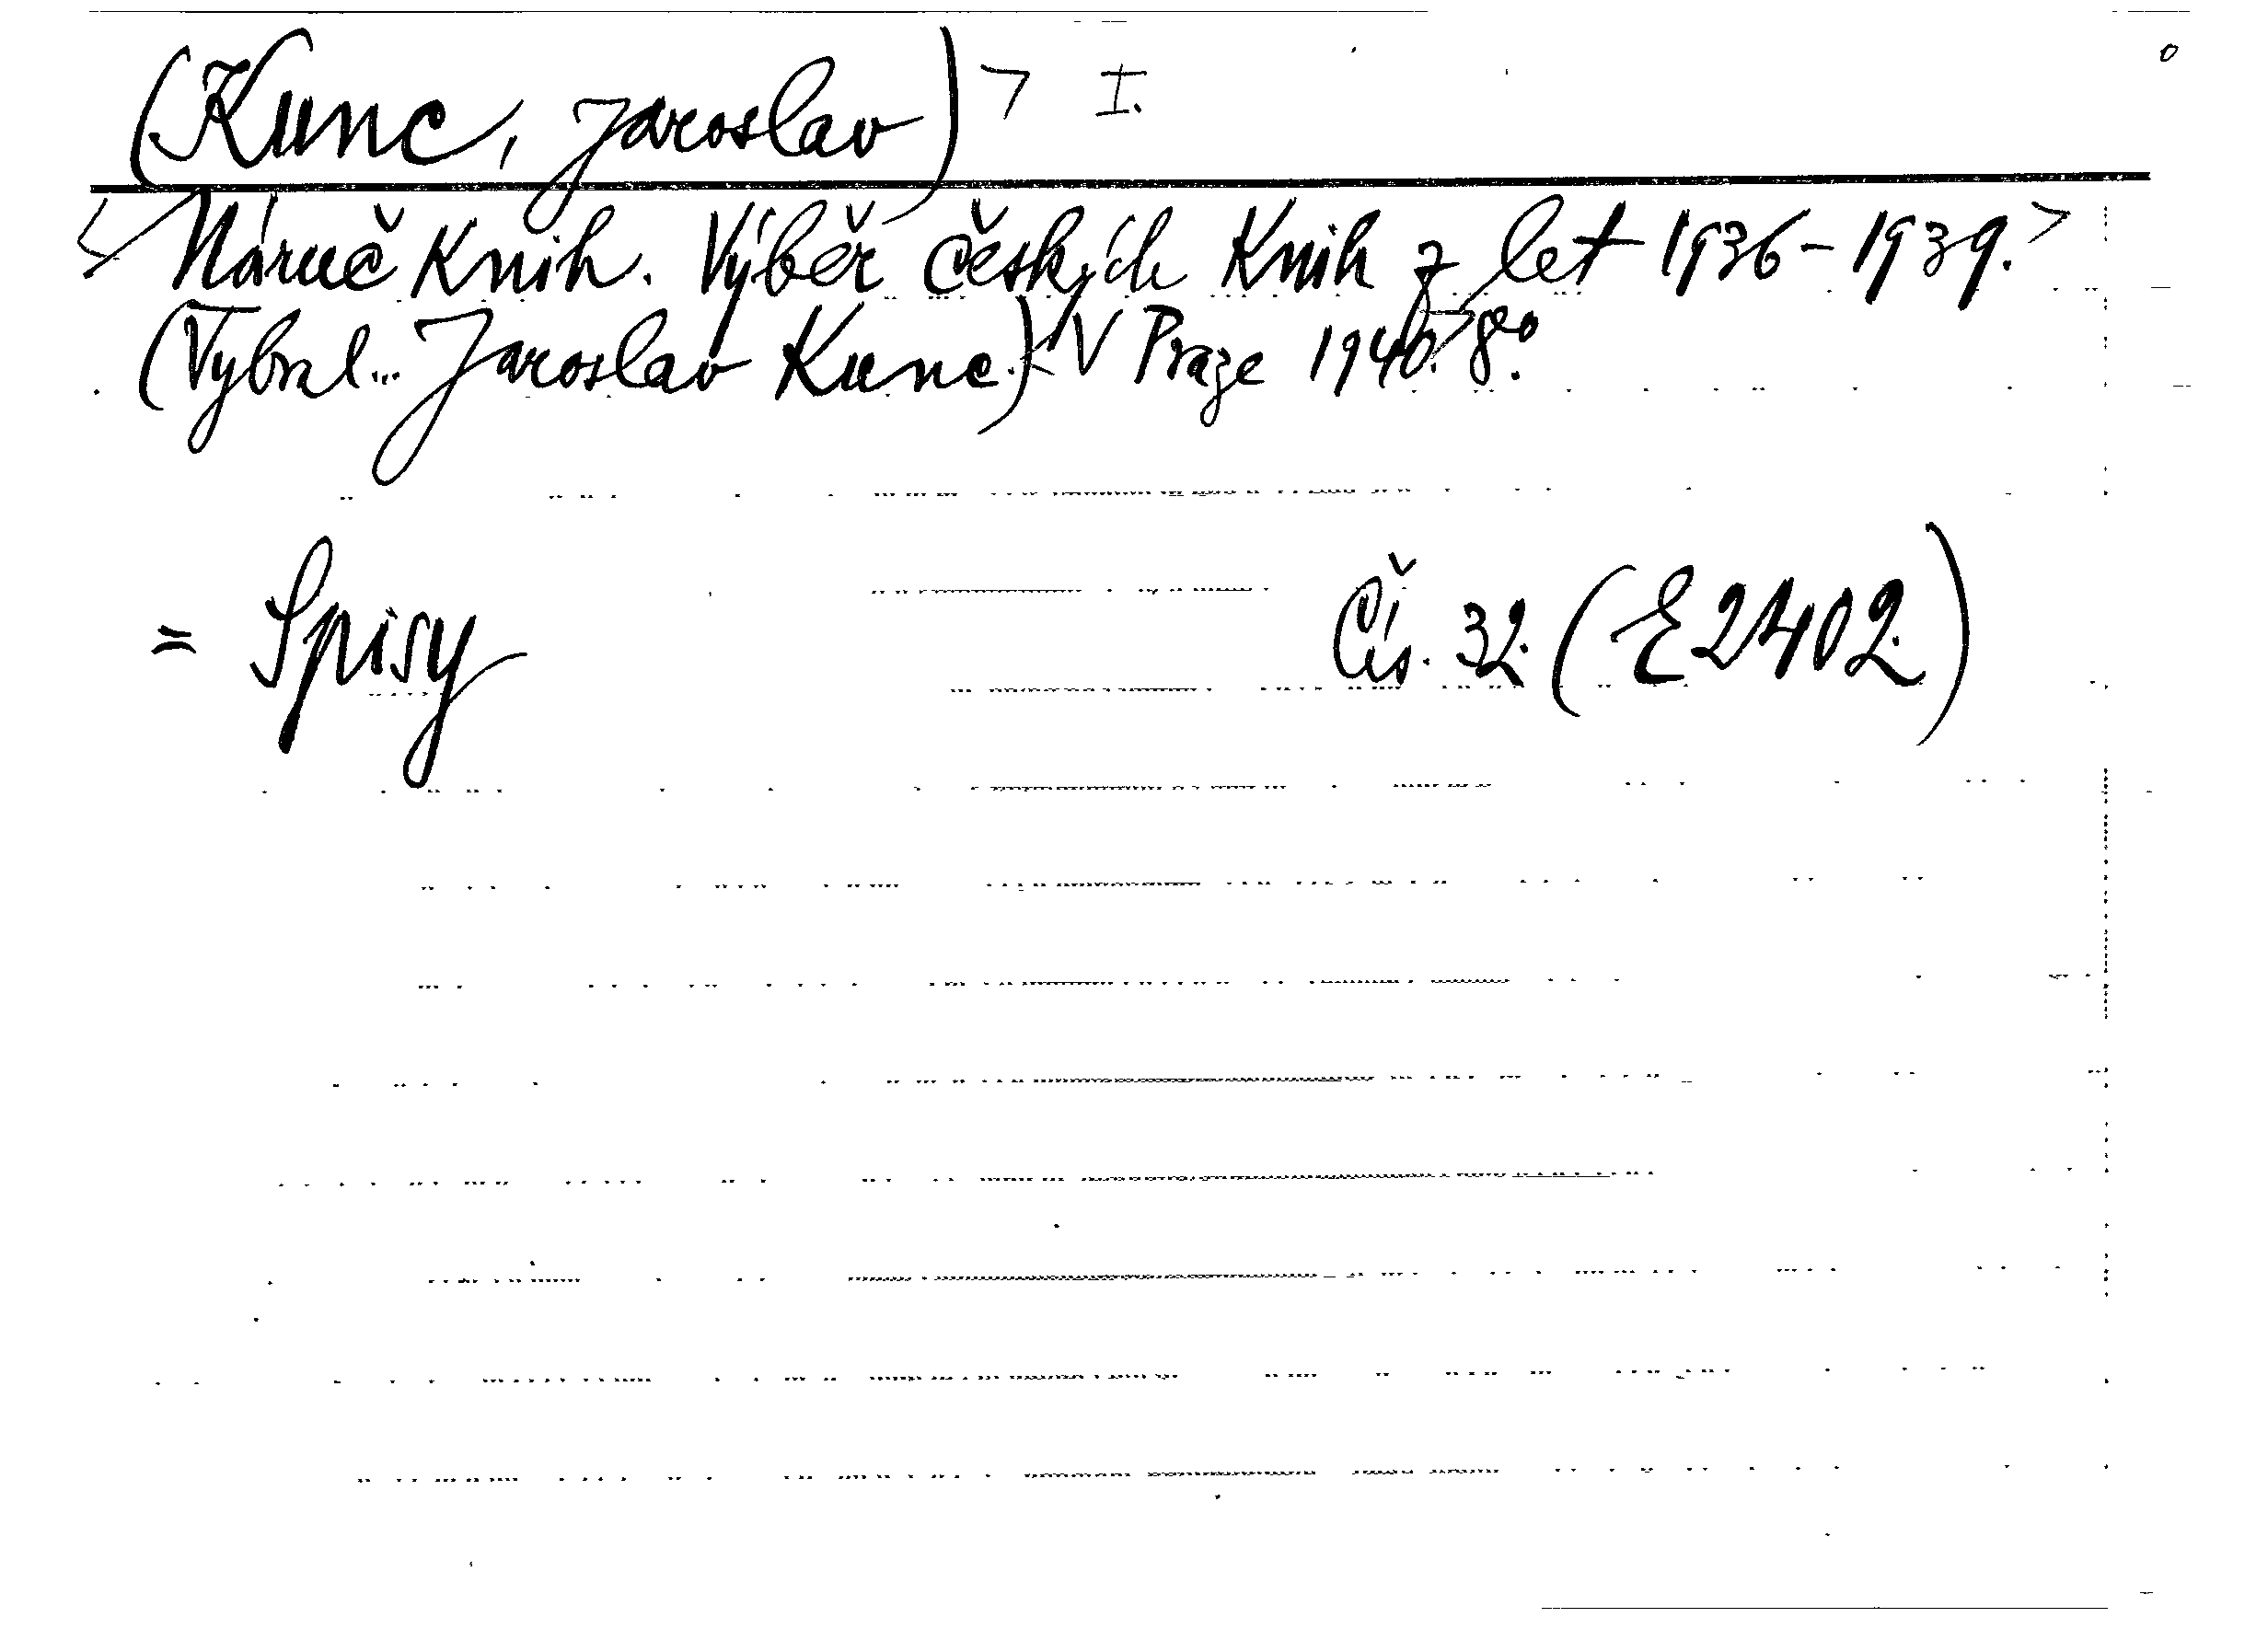 (Kunc, Jaroslav)> I.
<Náruč knih. Výběr českých knih z let 1936-1939.>
(Vybral... Jaroslav Kunc.) <V Praze 1940.> 8°.
= Spisy Čís. 32. (E 2402.)